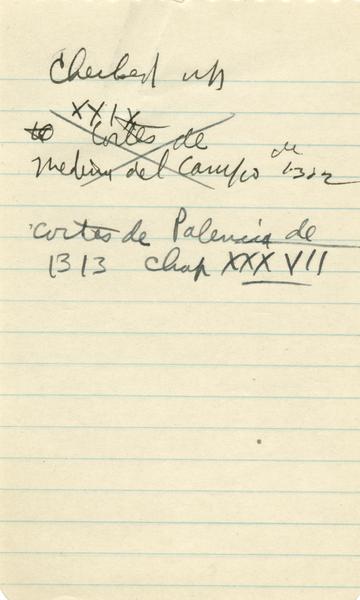 Checked up
XXIX
to Cortes de
Medina del Campo de 1302
cortes de Palencia de
1313 chap XXXVII